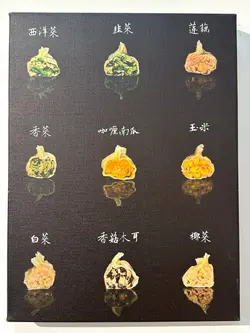 西洋菜 韭菜 莲藕
香菜 咖喱南瓜 玉米
白菜 香菇木耳 椰菜